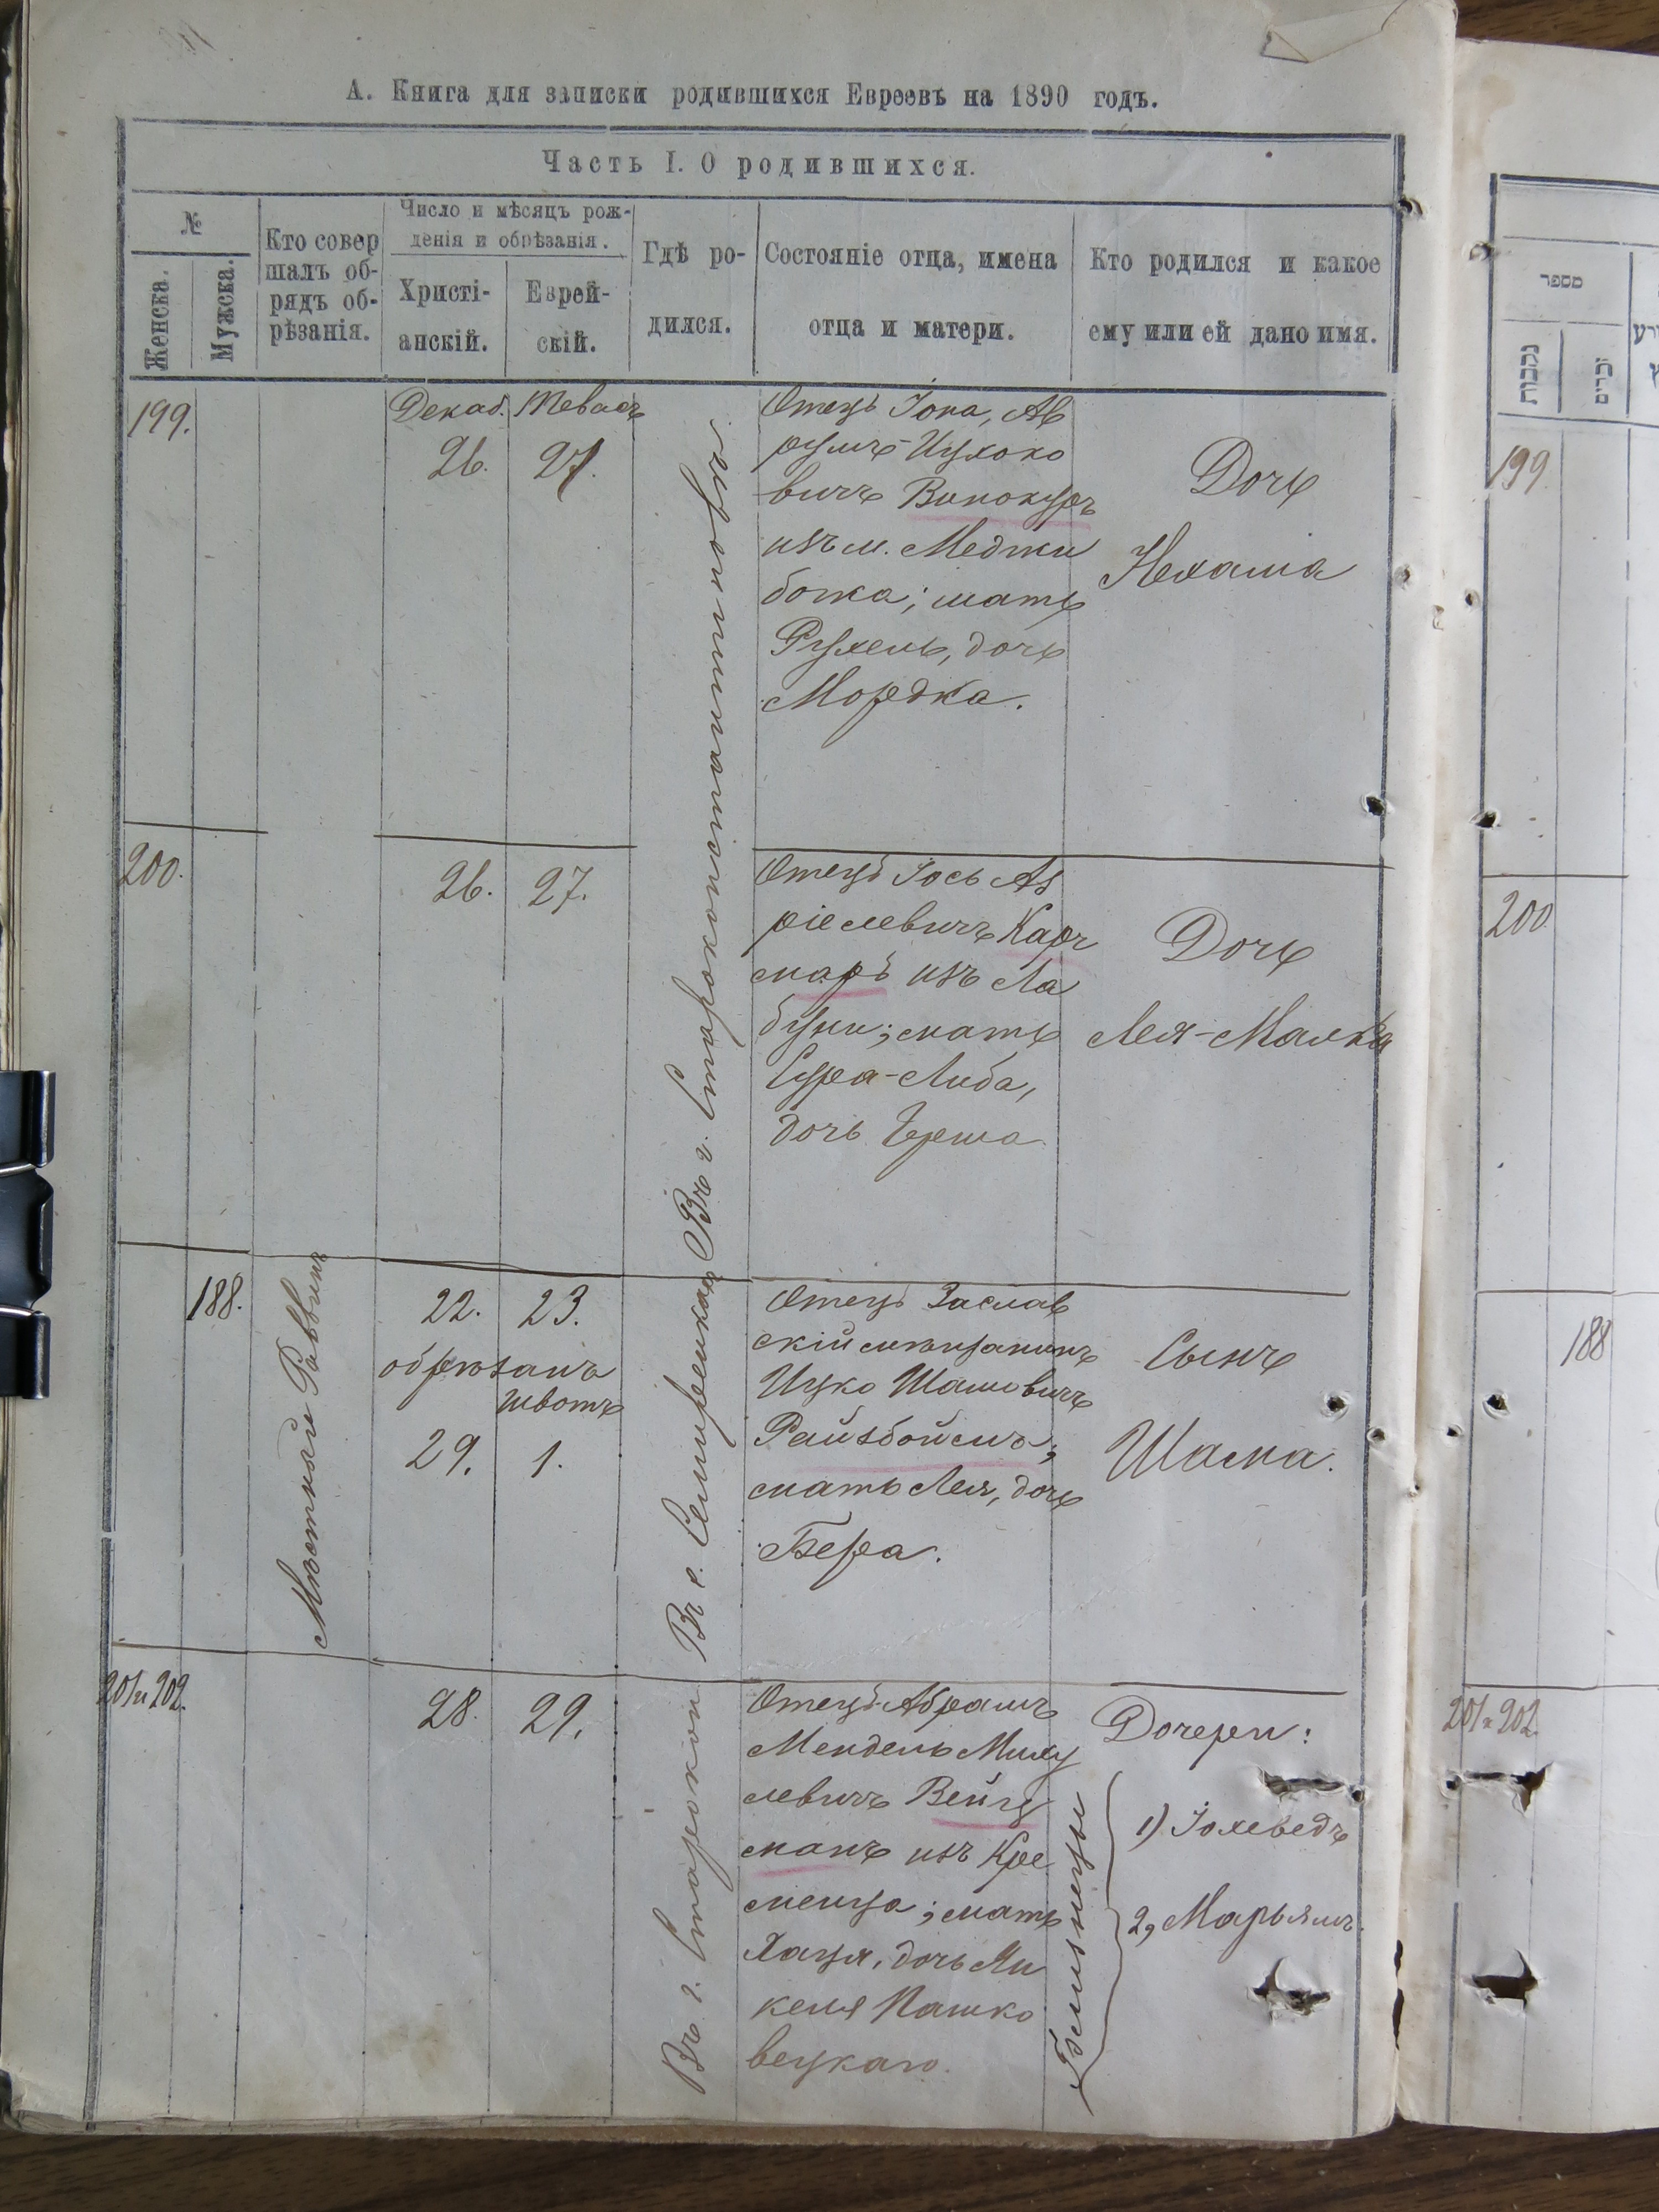 А. Книга для записки родившихся Евреевъ на 1890 годъ.
Часть I. О родившихся.
№
Женска.
Мужска.
Кто совер
шалъ об-
рядъ об-
рѣзанія.
Число и мѣсяцъ рож-
денія и обрѣзанія.
Христі-
анскій.
Еврей-
скій.
Гдѣ ро-
дился.
Состояніе отца, имена
отца и матери.
Кто родился и какое
ему или ей дано имя.
199.
Декаб.
26.
Теваеъ
27.
Въ г. Староконстантиновѣ
Отецъ Іона, Ав
румъ-Ицхоко
вичъ Винокуръ
изъ м. Меджи
божа; мать
Рухель, дочь
Мордка.
Дочь
Нехама
200.
26.
27.
Отецъ Іось Аз
ріелевичъ Карч
маръ изъ Ла
буни; мать
Сура-Либа,
дочь Герша
Дочь
Лея-Малка
188.
Мѣстный Раввинъ
22.
23.
обрѣзанъ
швотъ
29.
1.
Въ с. Семиренкахъ
Отецъ Заслав
скій мѣщанинъ
Ицко Шамовичъ
Райзбоймъ;
мать Лея, дочь
Бера.
Сынъ
Шама.
201 и 202.
28.
29.
Въ г. Старокон
Отецъ Абрамъ
Мендель Миху
левичъ Вейц
манъ изъ Кре
менца; мать
Хаця, дочь Ян
келя Пашко
вецкаго.
Близнецы
Дочери:
1) Іохеведъ
2, Марьямъ.
מספר
נקבות
זכרים
199
200
188
201 и 202